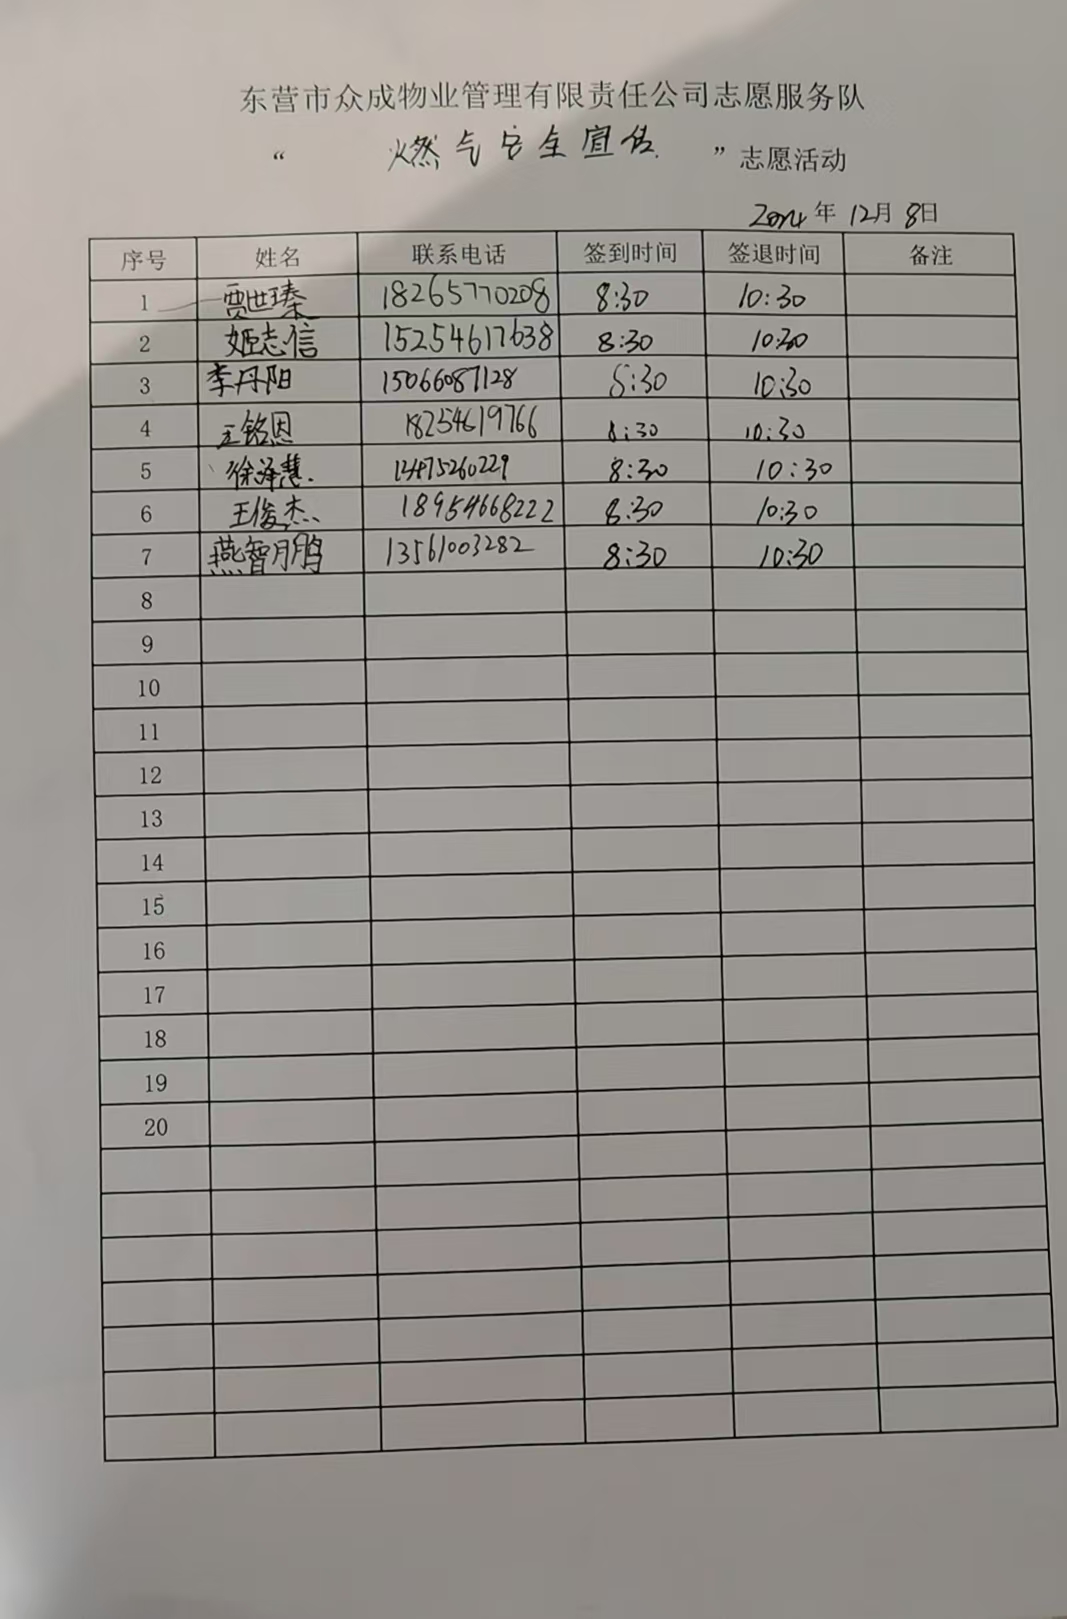 东营市众成物业管理有限责任公司志愿服务队
“ 燃气安全宣传 ” 志愿活动
2024 年 12月 8日
序号 姓名 联系电话 签到时间 签退时间 备注
1 贾世瑧 18265770208 8:30 10:30
2 姬志信 15254617638 8:30 10:30
3 李丹阳 15066087128 8:30 10:30
4 王铭恩 18254619766 8:30 10:30
5 徐泽慧 8:30 10:30
6 王俊杰 18954668222 8:30 10:30
7 燕智鹏 13561003282 8:30 10:30
8
9
10
11
12
13
14
15
16
17
18
19
20